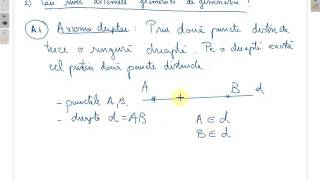 2) Care sunt axiomele geometriei de gimnaziu?
A1 Axioma dreptei: Prin două puncte distincte
trece o singură dreaptă. Pe o dreaptă există
cel puțin două puncte distincte.
A B d
- punctele A, B.
- dreapta d = AB
A ∈ d
B ∈ d.